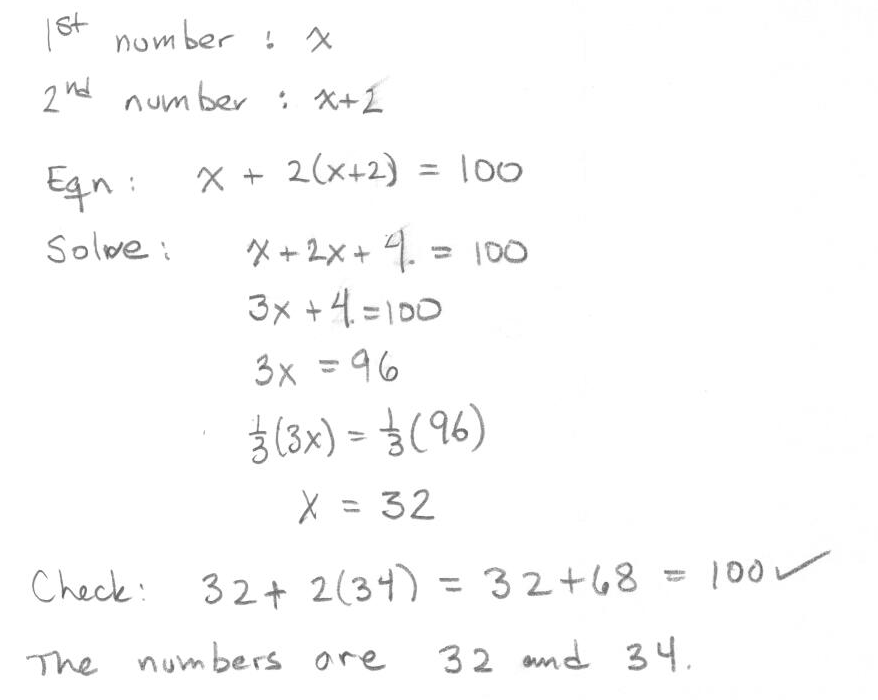 1st number : x
2nd number : x+2
Eqn : x + 2(x+2) = 100
Solve : x + 2x + 4 = 100
3x + 4 = 100
3x = 96
1/3(3x) = 1/3(96)
x = 32
Check : 32 + 2(34) = 32 + 68 = 100 ✓
The numbers are 32 and 34.